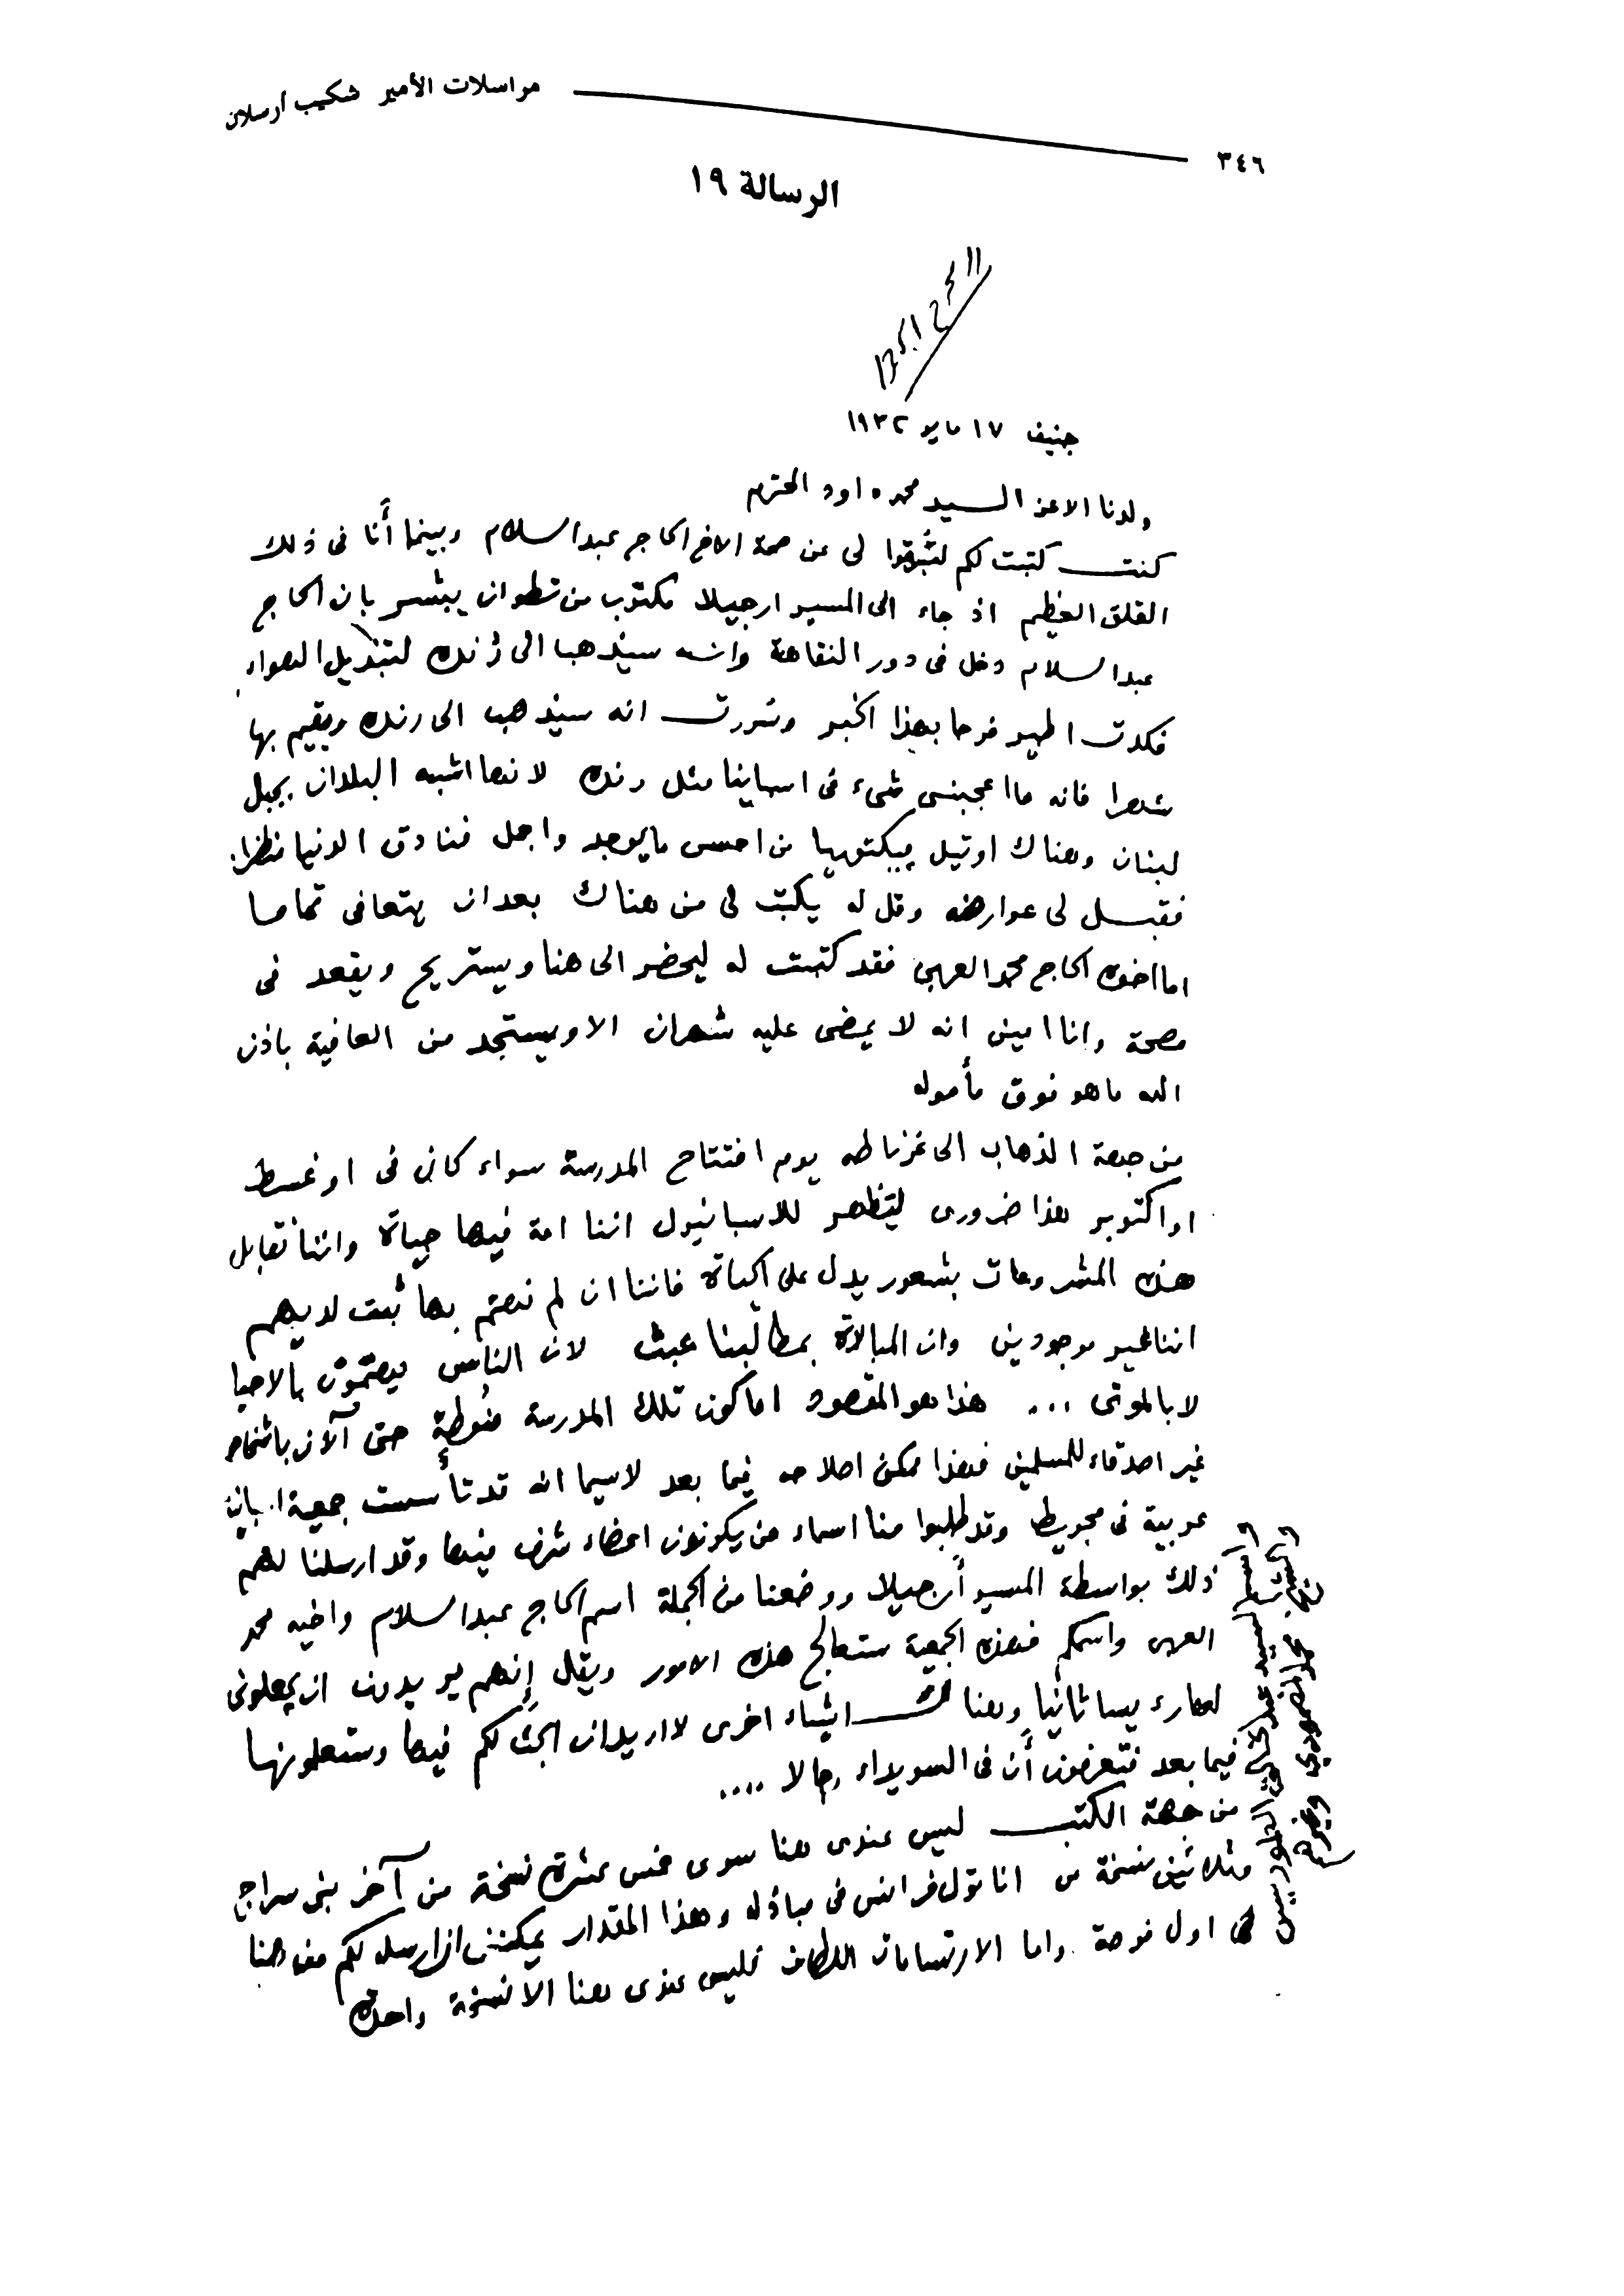 مراسلات الأمير شكيب أرسلان
٣٤٦
الرسالة ١٩
١١ محرم ١٣٥١
جنيف ١٧ مايو ١٩٣٢
ولدنا الاعز السيد محمد داود المحترم
كنت كتبت لكم لتبرقوا لى عن صحة الاخ الحاج عبد السلام وبينما أنا فى ذلك
القلق العظيم اذ جاء الى المسيو ارجيلا مكتوب من تطوان يبشر بان الحاج
عبد السلام دخل فى دور النقاهة وانه سيذهب الى رندة لتبديل الهواء
فكدت اطير فرحا بهذا الخبر وسررت انه سيذهب الى رنده ويقيم بها
شهرا فانه ما اعجبنى شىء فى اسبانيا مثل رنده لانها اشبه البلدان بجبل
لبنان وهناك اوتيل بيكتوريا من احسن ما يوجد واجمل فنادق الدنيا منظرا
فقبل لى عوارضه وقل له يكتب لى من هناك بعد ان يتعافى تماما
اما اخوه الحاج محمد العربى فقد كتبت له ليحضر الى هنا ويستريح ويقعد فى
مصحة وانا امين انه لا يمضى عليه شهران الا ويستجد من العافية باذن
الله ما هو فوق مأموله
من جهة الذهاب الى غرناطه يوم افتتاح المدرسة سواء كان فى اوغسط
او اكتوبر هذا ضرورى ليظهر للاسبانيول اننا امة فيها حياة واننا نقابل
هذه المشروعات بشعور يدل على الحياة فاننا ان لم نهتم بها ثبت لديهم
اننا غير موجودين وان المبالاة بمطالبنا عبث لان الناس يهتمون بالاحيا
لا بالموتى ... هذا هو المقصود اما كون تلك المدرسة منوطة حتى الآن باشخاص
غير اصدقاء للمسلمين فهذا ممكن اصلاحه فيما بعد لاسيما انه قد تأسست جمعية اسبانية
عربية فى مجريط وقد طلبوا منا اسماء من يكونون اعضاء شرف فيها وقد ارسلنا لهم
ذلك بواسطة المسيو أرجيلا ووضعنا من الجملة اسم الحاج عبد السلام واخيه محمد
العربى واسمكم فهذه الجمعية ستعالج هذه الامور ويقال إنهم يريدون ان يجعلونى
لها رءيسا ثانيا وهناك اشياء اخرى لا اريد ان ابحث لكم فيها وستعلمونها
فيما بعد فتعرفون أن فى السويداء رجالا ....
من جهة الكتب ليس عندى هنا سوى خمس عشرة نسخة من آخر بنى سراج
وثلاثين نسخة من اناتول فرانس فى مباذله وهذا المقدار يمكننى ان ارسله لكم من هنا
فى اول فرصة واما الارتسامات اللطاف فليس عندى هنا الا نسخة واحدة